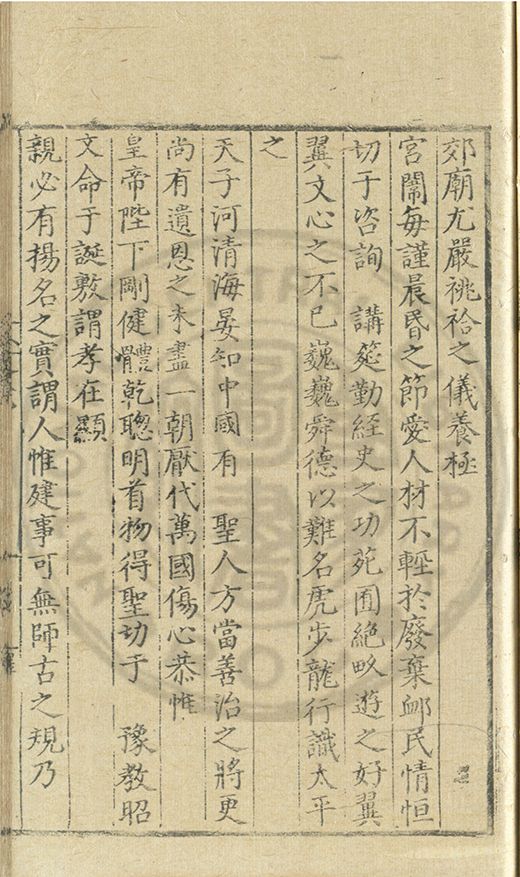 郊廟尤嚴祧祫之儀養極
宮闈每謹晨昏之節愛人材不輕於廢棄䘏民情恒
切于咨詢　講筵勤経史之功苑囿絶畋遊之好翼
翼文心之不已巍巍舜德以難名虎步龍行識太平
之
天子河清海晏知中國有　聖人方當善治之將更
尚有遺恩之未盡一朝厭代萬國傷心恭惟
皇帝陛下剛健體乾聰明首物得聖功于　豫教昭
文命于誕敷謂孝在顯
親必有揚名之實謂人惟建事可無師古之規乃